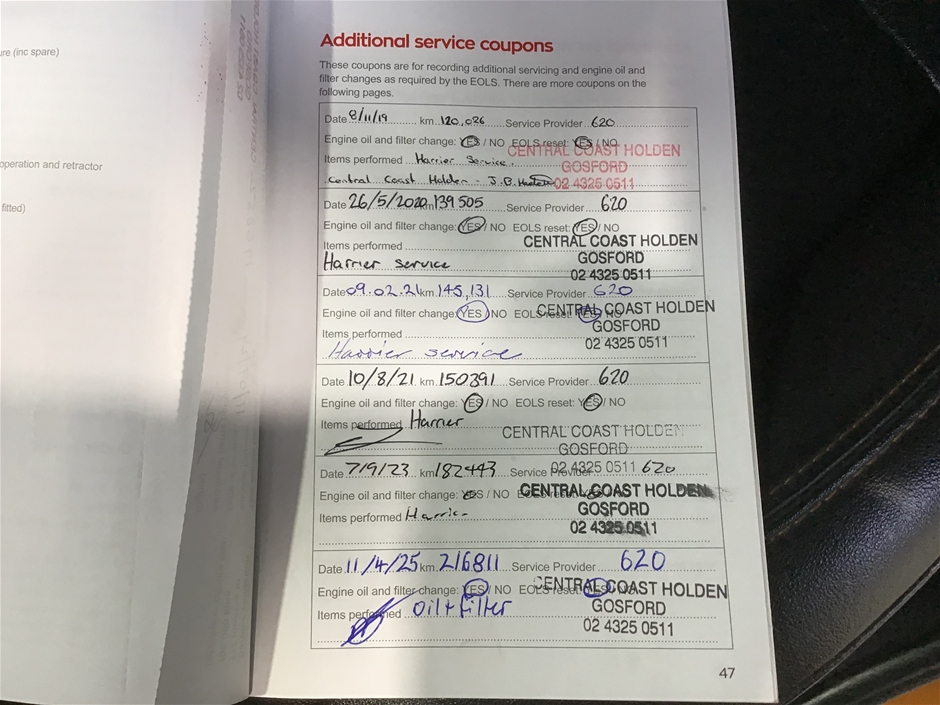 ure (inc spare)
operation and retractor
fitted)
Additional service coupons
These coupons are for recording additional servicing and engine oil and
filter changes as required by the EOLS. There are more coupons on the
following pages.
Date 8/11/19 km 120,026 Service Provider 620
Engine oil and filter change: YES / NO EOLS reset: YES / NO
CENTRAL COAST HOLDEN
GOSFORD
02 4325 0511
Items performed Harrier Service.
Central Coast Holden - J.B.
Date 26/5/2020 km 139505 Service Provider 620
Engine oil and filter change: YES / NO EOLS reset: YES / NO
CENTRAL COAST HOLDEN
GOSFORD
02 4325 0511
Items performed
Harrier service
Date 09.02.21 km 145,131 Service Provider 620
Engine oil and filter change: YES / NO EOLS reset: YES / NO
CENTRAL COAST HOLDEN
GOSFORD
02 4325 0511
Items performed
Harrier service
Date 10/8/21 km 150391 Service Provider 620
Engine oil and filter change: YES / NO EOLS reset: YES / NO
Items performed Harrier
CENTRAL COAST HOLDEN
GOSFORD
02 4325 0511
Date 7/9/23 km 182443 Service Provider 620
Engine oil and filter change: YES / NO EOLS reset: YES
CENTRAL COAST HOLDEN
GOSFORD
02 4325 0511
Items performed Harrier
Date 11/4/25 km 216811 Service Provider 620
Engine oil and filter change: YES / NO EOLS reset: YES
CENTRAL COAST HOLDEN
GOSFORD
02 4325 0511
Items performed Oil + filter
47